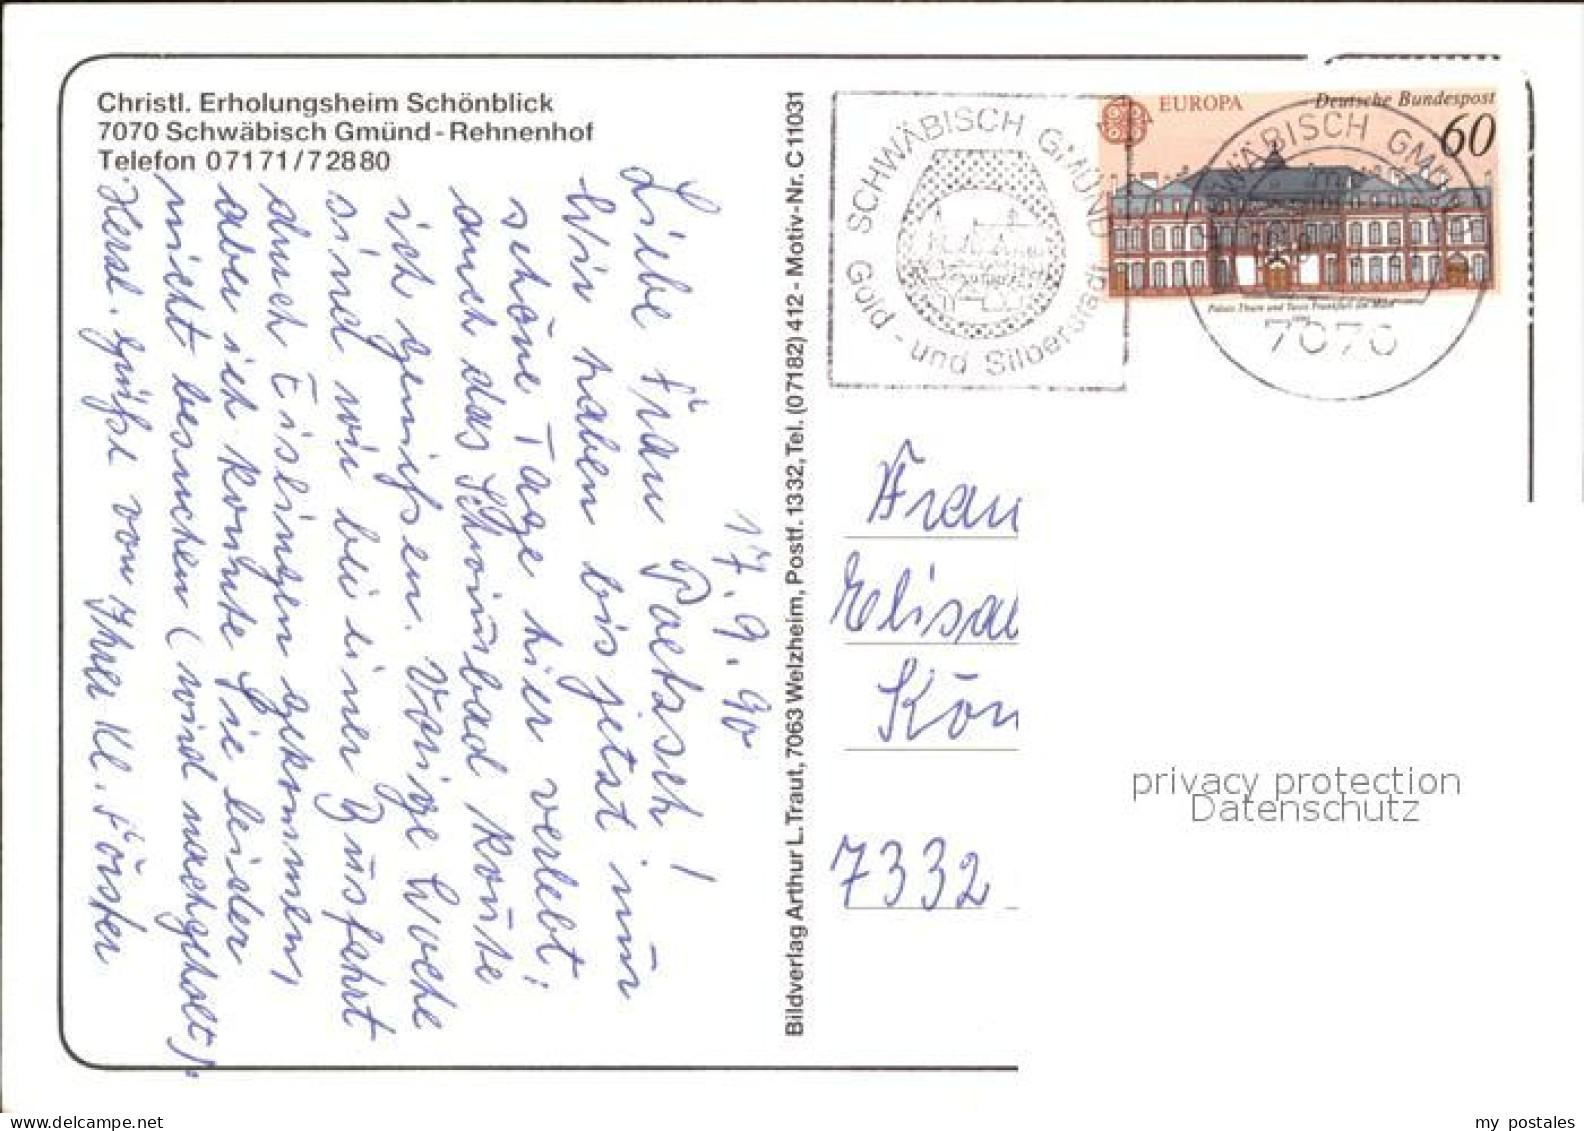 Christl. Erholungsheim Schönblick
7070 Schwäbisch Gmünd-Rehnenhof
Telefon 07171/72880
17.9.90
Liebe Frau Paetzsch!
Wir haben bis jetzt nur
schöne Tage hier verlebt;
auch das Schwimbad konte
ich genießen. Vorige Woche
sind wir bei einer Busfahrt
durch Eislingen gekommen,
aber ich konnte Sie leider
nicht besuchen (wird nachgeholt)!
Herzl. Grüße von Ihrer Kl. Förster
Bildverlag Arthur L. Traut, 7063 Welzheim, Postf. 1332, Tel. (07182) 412 - Motiv-Nr. C 11031
SCHWÄBISCH GMÜND
Gold - und Silberstadt
EUROPA
Deutsche Bundespost
60
Palais Thurn und Taxis Frankfurt am Main
SCHWÄBISCH GMÜND
7070
Frau
Elisa
Kön
7332
privacy protection
Datenschutz
www.delcampe.net
my postales